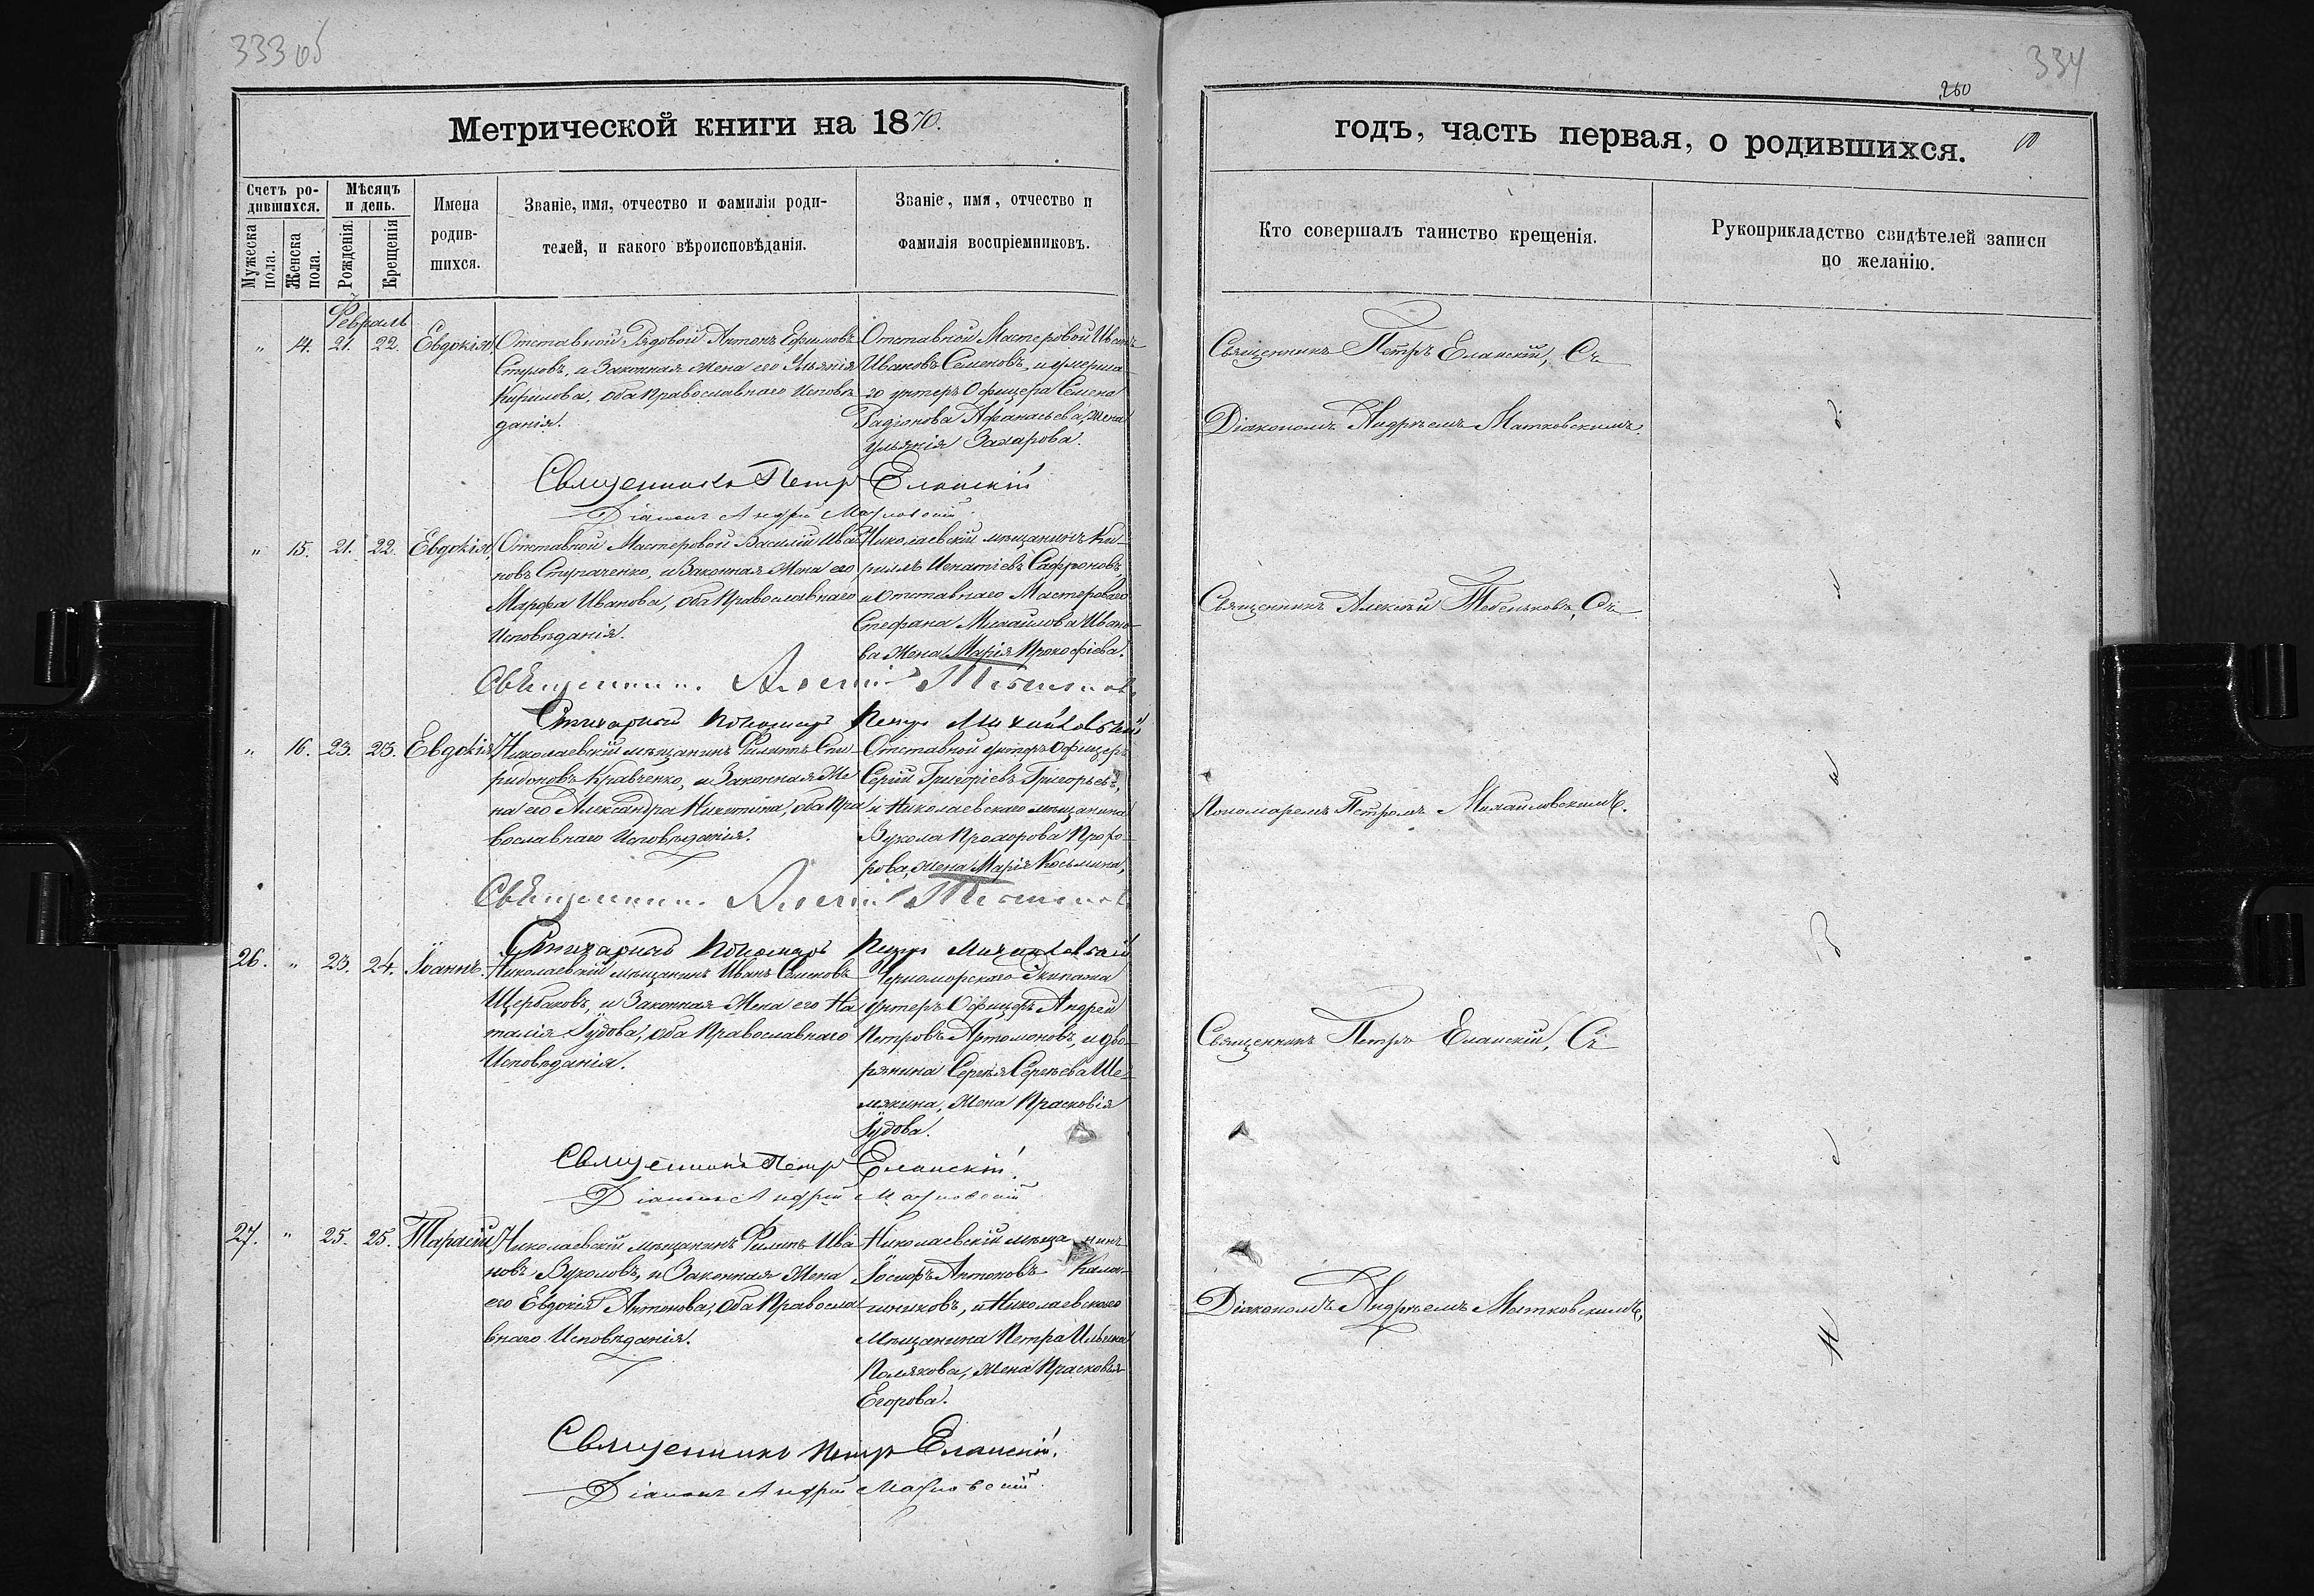 333 об
Метрической книги на 1870.
Счетъ ро-
дившихся.
Мужеска
пола.
Женска
пола.
Мѣсяцъ
и день.
Рожденія.
Крещенія
Имена
родив-
шихся.
Званіе, имя, отчество и фамилія роди-
телей, и какого вѣроисповѣданія.
Званіе, имя, отчество и
фамилія воспріемниковъ.
Февраль
" 14. 21. 22. Евдокія
Отставной Рядовой Антонъ Ефимовъ
и Законная Жена его
Кирилова, оба Православнаго Исповѣ
данія.
Отставной Мастеровой Иванъ
Ивановъ Семеновъ, и умерша
го унтеръ Офицера Семена
Радіонова Афанасьева, Жена
Захарова.
Священникъ Петръ Еланскій
Діаконъ Андрей
" 15. 21. 22. Евдокія
Отставной Мастеровой Василій Ива
новъ Ступаченко, и Законная Жена его
Марфа Иванова, оба Православнаго
Исповѣданія.
Николаевскій мѣщанинъ Ки-
риллъ Игнатіевъ Сафроновъ,
и Отставнаго Мастероваго
Стефана Михайлова Ивано-
ва Жена Марія Прокофіева.
Священникъ Алексій
Стихарный Пономарь Петръ Михайловскій
" 16. 23. 23. Евдокія
Николаевскій мѣщанинъ Филатъ Спи
ридоновъ Кравченко, и Законная Же
на его Александра Никитина, оба Пра
вославнаго Исповѣданія.
Отставной унтеръ Офицеръ
Сергій Григоріевъ Григорьевъ,
и Николаевскаго мѣщанина
Вукола Прохорова Прохо-
рова, жена Марія Косьмина,
Священникъ Алексій
Стихарный Пономарь Петръ Михайловскій
26. " 23. 24. Іоаннъ.
Николаевскій мѣщанинъ Иванъ Семеновъ
Щербаковъ, и Законная Жена его На
талія Іудова, оба Православнаго
Исповѣданія.
Черноморскаго Экипажа
унтеръ Офицеръ Андрей
Петровъ Артомоновъ, и дво-
рянина Сергѣя Сергѣева Ше-
мякина, Жена Прасковія
Іудова.
Священникъ Петръ Еланскій.
Діаконъ Андрей
27. " 25. 25. Тарасій
Николаевскій мѣщанинъ Филипъ Ива
новъ Вуколовъ, и Законная Жена
его Евдокія Антонова, оба Правосла
внаго Исповѣданія.
Николаевскій мѣщанинъ
Іосифъ Антоновъ Калаш-
никовъ, и Николаевскаго
Мѣщанина Петра Ильина
Полякова, Жена Прасковья
Егорова.
Священникъ Петръ Еланскій.
Діаконъ Андрей
334
260
годъ, часть первая, о родившихся. 10
Кто совершалъ таинство крещенія.
Рукоприкладство свидѣтелей записи
по желанію.
Священникъ Петръ Еланскій, Съ
Діакономъ Андреемъ Матковскимъ.
Священникъ Алексѣй Тебеньковъ, Съ
Пономаремъ Петромъ Михайловскимъ.
Священникъ Петръ Еланскій, Съ
Діакономъ Андреемъ Матковскимъ,